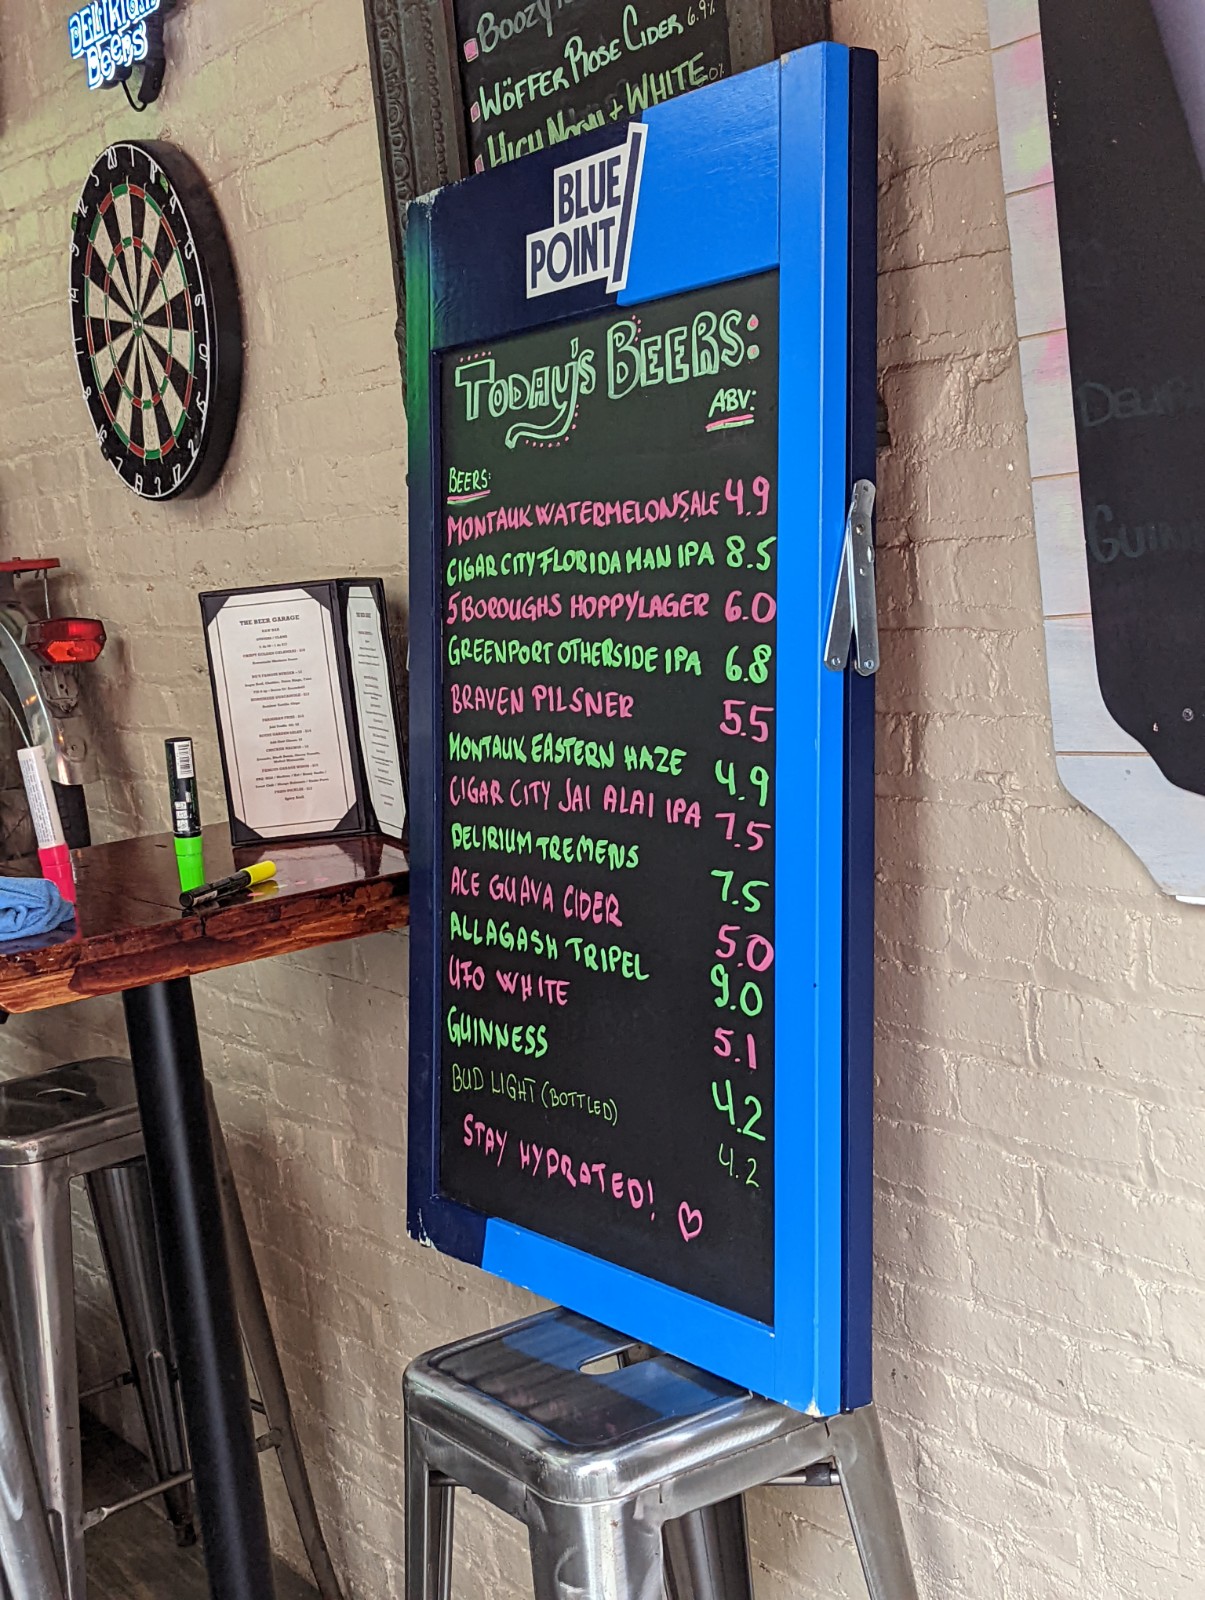 DELIRIUM
Beers
BOOZY
WÖFFER ROSE CIDER 6.9%
HIGH NOON + WHITE
BLUE
POINT
TODAY'S BEERS:
ABV:
BEERS:
MONTAUK WATERMELON SALE 4.9
CIGAR CITY FLORIDA MAN IPA 8.5
5 BOROUGHS HOPPY LAGER 6.0
GREENPORT OTHERSIDE IPA 6.8
BRAVEN PILSNER 5.5
MONTAUK EASTERN HAZE 4.9
CIGAR CITY JAI ALAI IPA 7.5
DELIRIUM TREMENS 7.5
ACE GUAVA CIDER 5.0
ALLAGASH TRIPEL 9.0
UFO WHITE 5.1
GUINNESS 4.2
BUD LIGHT (BOTTLED) 4.2
STAY HYDRATED!
THE BEER GARAGE